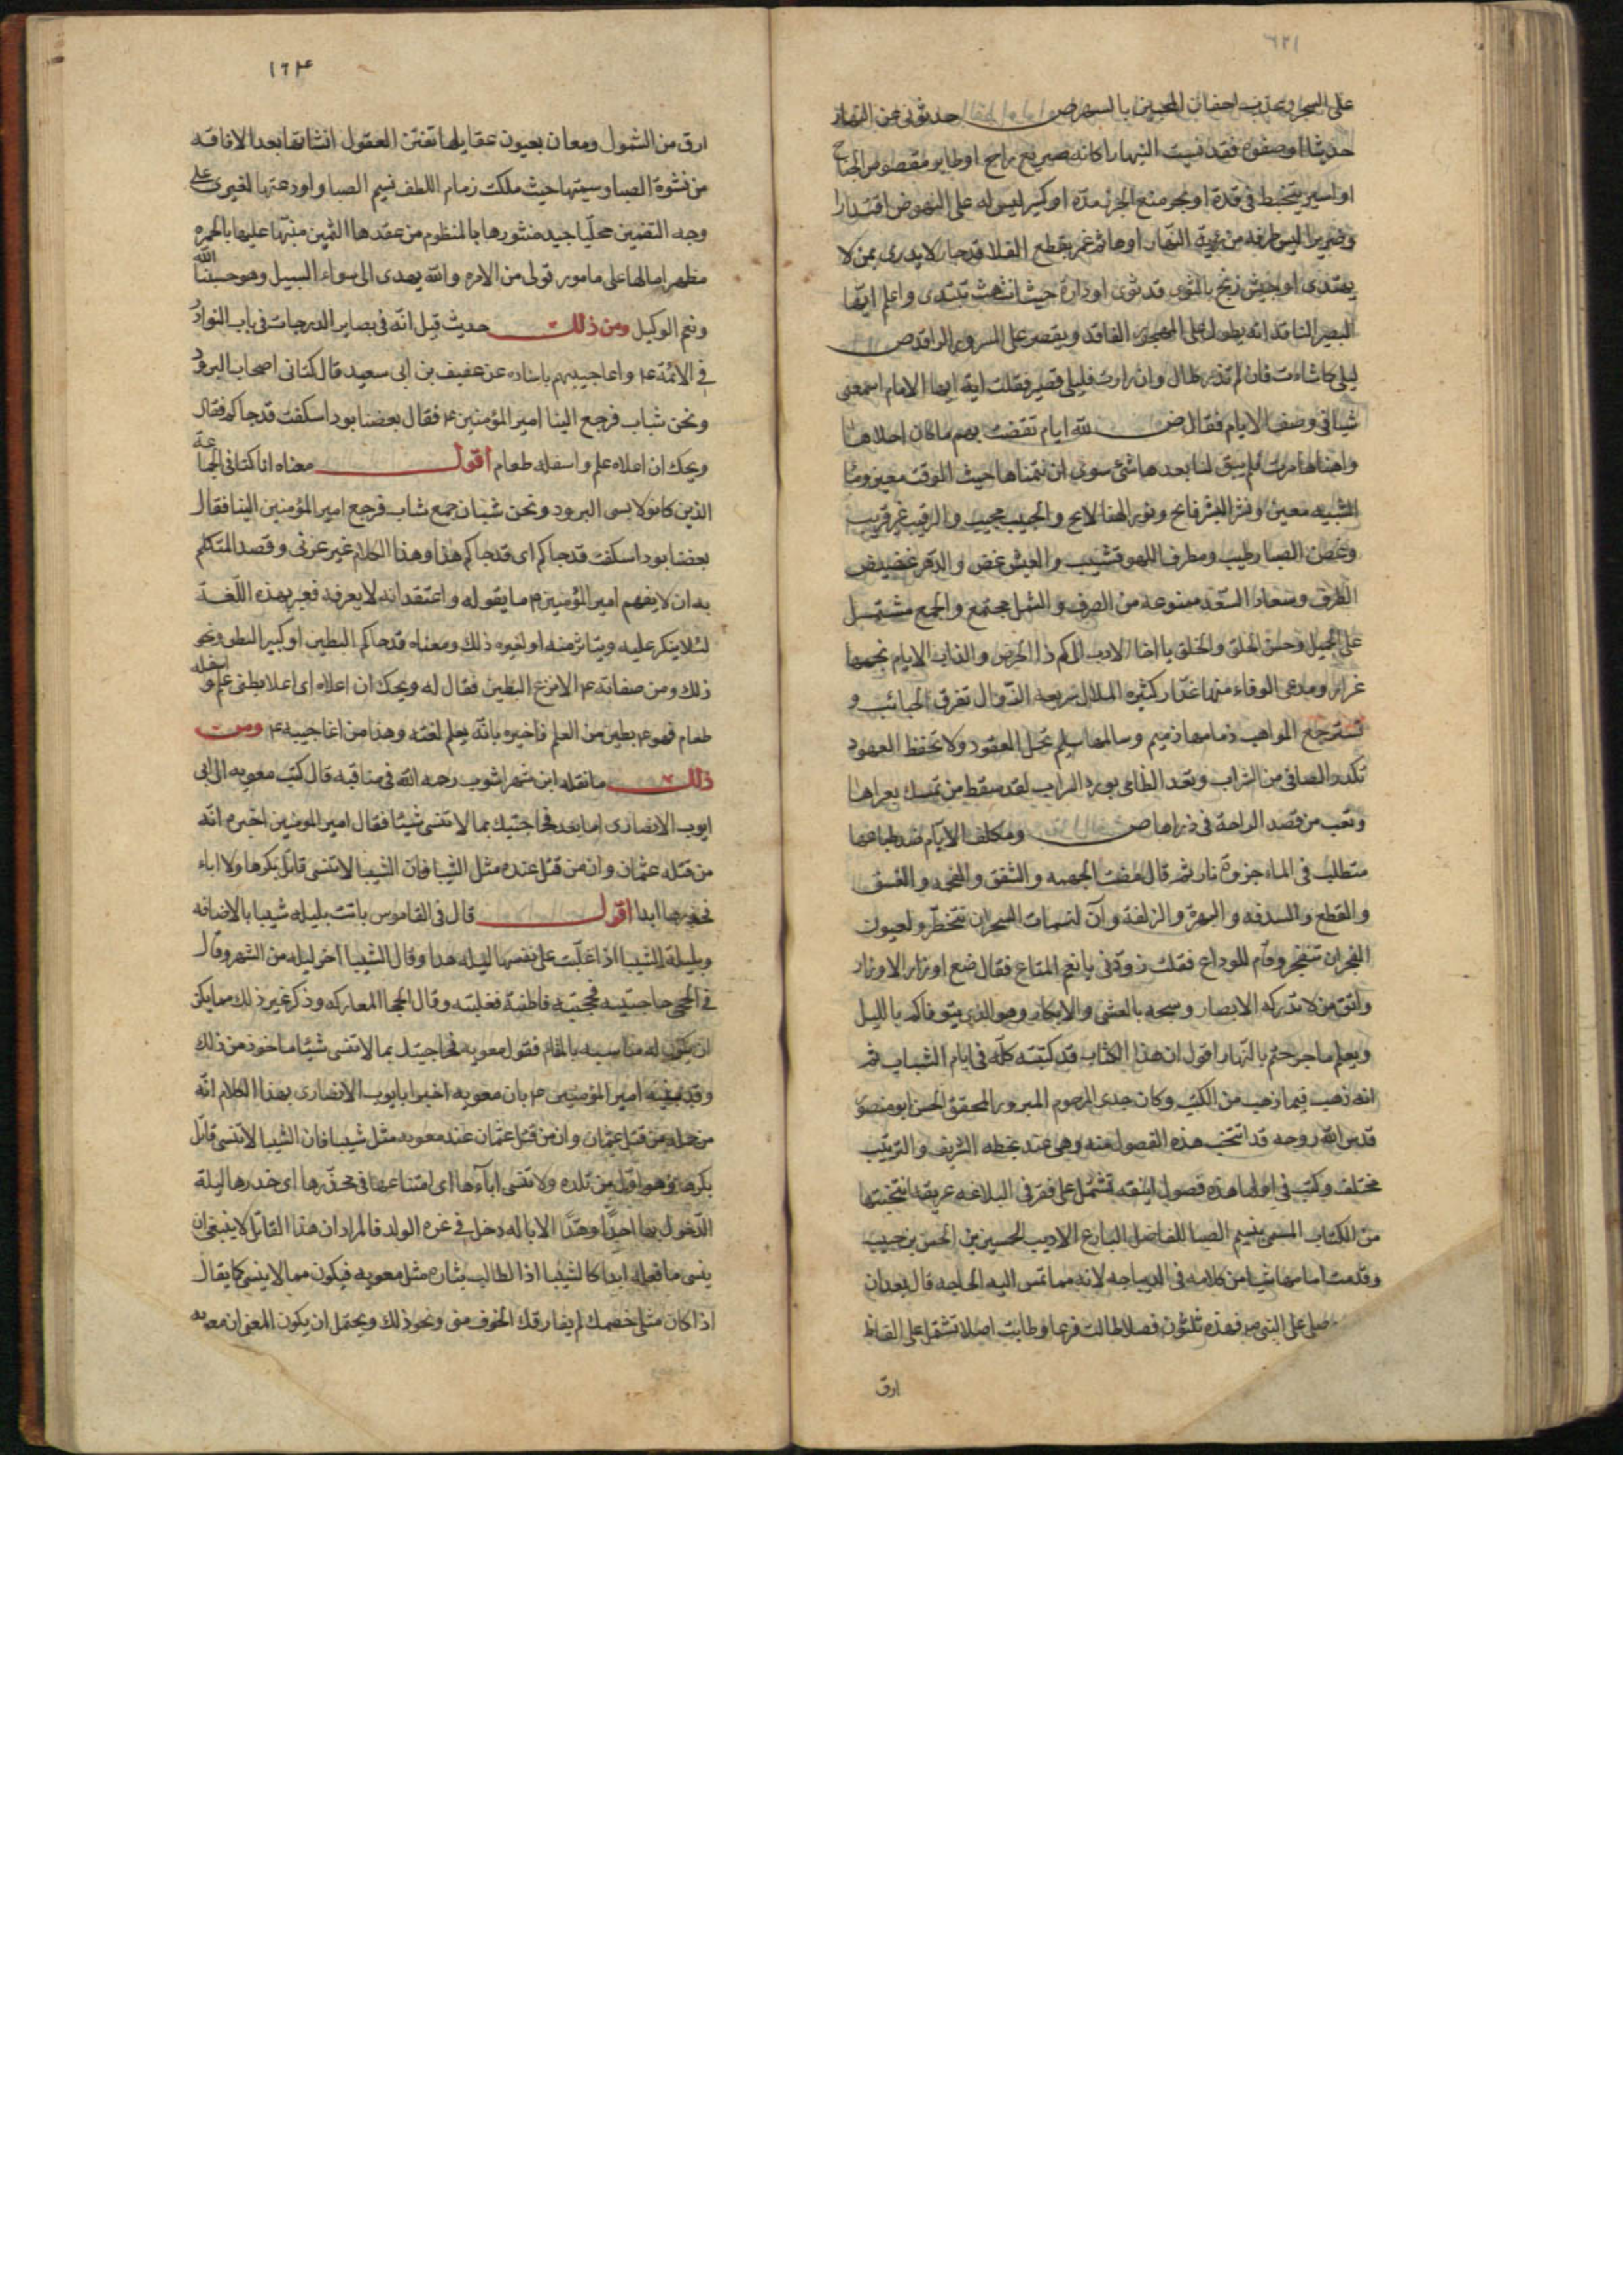 على السحر وتعذيب اجفان المحبين بالسهر ض حدثونى عن النهار
حديثا اوصفوه فقد نسيت النهارا كانه صريع رامح او طاير مقصوص الجناح
او اسير يتخبط فى قده او بحر منع الجزر مده او كبير ليس له على النهوض اقتدارا
وضرير اليس طرفه من رؤية النهار اوهائم غمر يقطع الفلا قد حار لا يدرى بمن لا
يهتدى او جيش زنج بالثوى قد ثوى او دارة حيث انتهت تبتدى واعلم ايها
البصير الناقد انه يطول على المهجور الفاقد ويقصر على المسرور الراقد ض
ليلى كما شاءت فان لم تزر طال وان زارت فليلى قصير فقلت ايه ايها الامام اسمعنى
شيا فى وصف الايام فقال ض لله ايام تقضت بهم ما كان احلاها
واهناها مرت فلم يبق لنا بعدها شئ سوى ان نتمناها حيث الوقت معين وماء
الشبيبه معين وثغر البشر فاتح ونور الهنا لايح والحبيب مجيب والرقيب غير قريب
وغصن الصبا رطيب ومطرف اللهو قشيب والعيش غض والدهر غضيض
الطرف وسعاد السعد ممنوعه من الصرف والشمل مجتمع والجمع مشتمل
على الجميل وحسن الخلق والخلق يا اخا الادب الى كم ذا الحرص والداب الايام نجمها
غرار ومدعى الوفاء منها غدار كثيره الملال سريعه الزوال تفرق الحبائب و
تسترجع المواهب ذمامها ذميم وسالمها سليم تحل العقود ولا تحفظ العهود
تكدر الصافى من الشراب وتعد الظامى بورد السراب لقد سقط من تمسك بعراها
وتعب من قصد الراحة فى ذراها ض ومكلف الايام ضد طباعها
متطلب فى الماء جذوة نار ثم قال عفت الجهمه والشفق والفحمه والغسق
والقطع والسدفه والبهرة والزلفة وآن لنسمات السحر ان تتخطر ولعيون
الفجر ان تنفجر وقام للوداع فقلت زودنى يا نعم المتاع فقال ضع اوزار الاوزار
واتق من لا تدركه الابصار وسبحه بالعشى والابكار وهو الذى يتوفاكم بالليل
ويعلم ما جرحتم بالنهار اقول ان هذا الكتاب قد كتبته كله فى ايام الشباب ثم
انه ذهب فيما ذهب من الكتب وكان جدى المرحوم المبرور المحقق الحسن ابو منصور
قدس الله روحه قد انتخب هذه الفصول منه وهى عند بخطه الشريف والترتيب
مختلف وكتب فى اولها هذه فصول انيقه تشتمل على فقر فى البلاغه عريقه انتخبتها
من الكتاب المسمى بنسيم الصبا للفاضل البارع الاديب الحسين بن الحسن بن حبيب
وقدمت امامها شيا من كلامه فى الديباجه لانه مما تمس اليه الحاجه قال بعد ان
صلى على النبى ص فهذه ثلثون فصلا طالت فرعا وطابت اصلا تشتمل على الفاظ
ارق
١٦٣
ارق من الشمول ومعان بعيون عقايلها تفتن العقول انشاتها بعد الافاقه
من نشوة الصبا وسميتها حيث ملكت زمام اللطف نسيم الصبا واودعتها لغيرى على
وجه التضمين محليا جيد منثورها بالمنظوم من عقدها الثمين منبها عليها بالحمره
مظهرا مالها على مامور قولى من الامره والله يهدى الى سواء السبيل وهو حسبنا الله
ونعم الوكيل ومن ذلك حديث قيل انه فى بصاير الدرجات فى باب النوادر
فى الائمة ع واعاجيبهم باسناده عن عفيف بن ابى سعيد قال كنا فى اصحاب البرود
ونحن شباب فرجع الينا امير المؤمنين ع فقال بعضنا بودا سكفت قد جاكم فقال
ويحك ان اعلاه علم واسفله طعام اقول معناه انا كنا فى الجماعة
الذين كانوا لابسى البرود ونحن شبان جمع شاب فرجع امير المؤمنين الينا فقال
بعضنا بودا سكفت قد جاكم اى قد جاكم هذا وهذا الكلام غير عربى وقصد المتكلم
به ان لا يفهم امير المؤمنين م ما يقوله واعتقد انه لا يعرفه فعبر بهذه اللغة
لئلا ينكر عليه ويتاثر منه او لغيره ذلك ومعناه قد جاكم البطين او كبير البطن ونحو
ذلك ومن صفاته ع الانزع البطين فقال له ويحك ان اعلاه اى اعلا بطنى علم واسفله
طعام فهو ع بطين من العلم فاخبره بانه يعلم لغته وهذا من اعاجيبه ع ومن
ذلك ما نقله ابن شهراشوب رحمه الله فى مناقبه قال كتب معويه الى ابى
ايوب الانصارى اما بعد فحاجيتك بما لا تنسى شيئا فقال امير المومنين اخبره انه
من قتله عثمان وان من قتل عنده مثل الشيبا فان الشيبا لا تنسى قاتل بكرها ولا اباء
عذرها ابدا اقول قال فى القاموس باتت بليلة شيبا بالاضافه
وبليلة الشيبا اذا غلبت على نفسها ليله هدا وقال الشيبا اخر ليله من الشهر وقال
فى الحجى حاجيته فحجيته فاطنته فغلبته وقال الحجا المعاركه وذكر غير ذلك مما يمكن
ان يكون له مناسبه بالمقام فقول معويه فحاجيتك بما لا تنسى شيئا ماخوذ من ذلك
وقد بينه امير المؤمنين م بان معويه اخبر ابا ايوب الانصارى بهذا الكلام انه
من جمله من قتل عثمان وان من قتل عثمان عند معويه مثل شيبا فان الشيبا لا تنسى قاتل
بكرها وهو اول من تلده ولا تنسى اباءها اى امتناعها فى عذرها اى خدرها ليلة
الدخول بها احدا وهذا الابا له دخل فى غره الولد فالمراد ان هذا القاتل لا ينبغى ان
ينسى ما فعله ابدا كالشيبا اذا الطالب بثاره مثل معويه فيكون مما لا ينسى كما يقال
اذا كان مثلى خصمك لم يفارقك الخوف منى ونحو ذلك ويحتمل ان يكون المعنى ان معويه